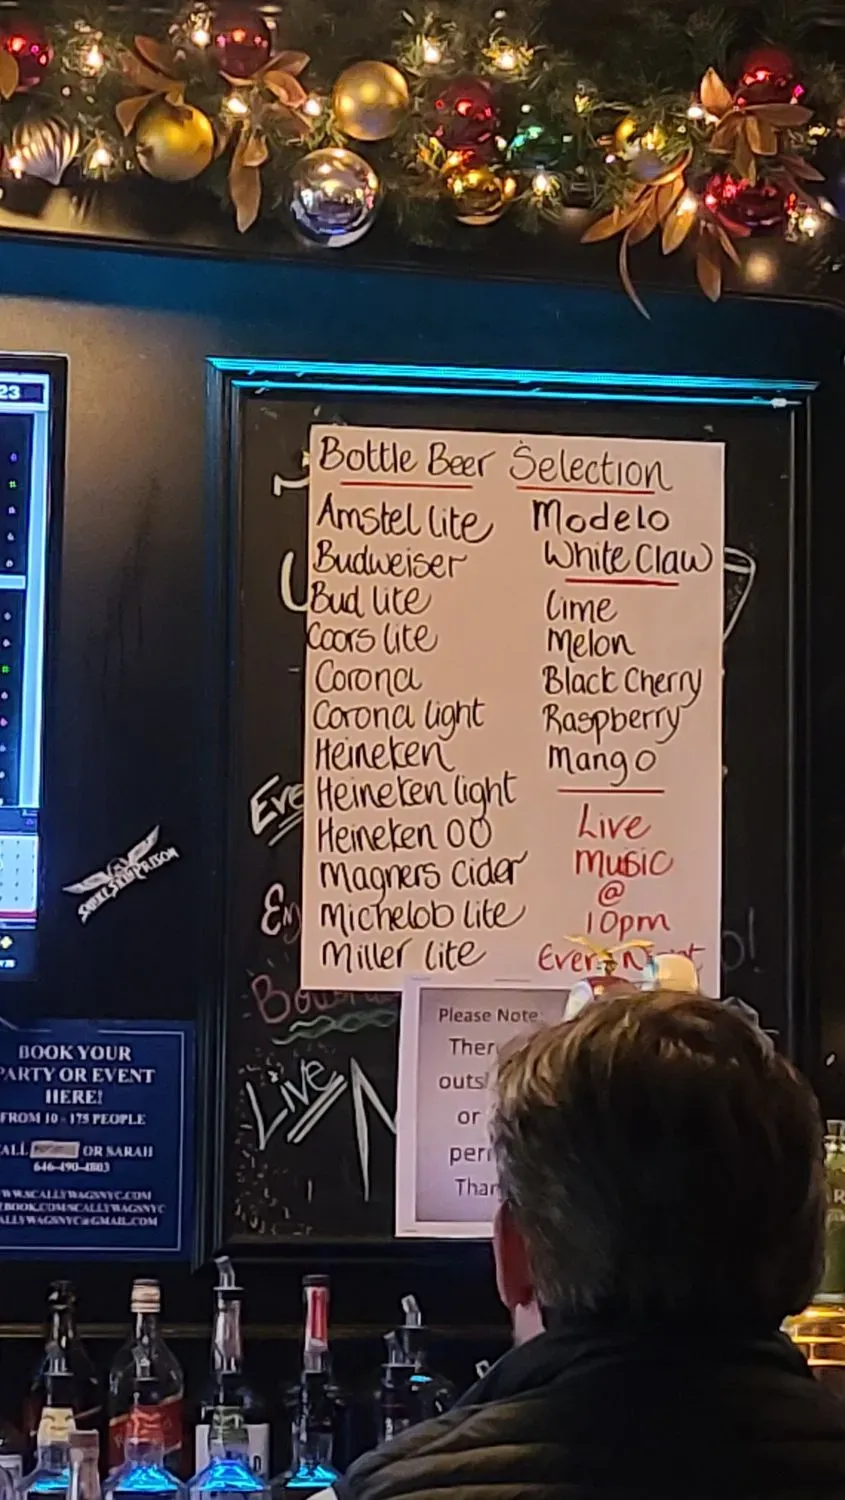 23
Bottle Beer Selection
Amstel lite
Budweiser
Bud lite
Coors lite
Corona
Corona light
Heineken
Heineken light
Heineken 00
Magners Cider
Michelob lite
Miller lite
Modelo
White Claw
Lime
Melon
Black Cherry
Raspberry
Mango
Live
Music
@
10pm
Every Night
Eve
Live N
Please Note
Ther
outs
or
peri
Than
BOOK YOUR
PARTY OR EVENT
HERE!
FROM 10 - 175 PEOPLE
CALL OR SARAH
646-490-4803
WWW.SCALLYWAGSNYC.COM
EBOOK.COM/SCALLYWAGSNYC
ALLYWAGSNYC@GMAIL.COM